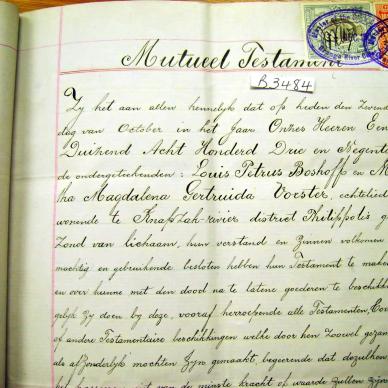 Mutueel Testament
B 3484
Zy het aan allen kennelyk dat op heden den Zevende
dag van October in het Jaar Onzes Heeren Een
Duizend Acht Honderd Drie en Negentig
de ondergeteekenden : Louis Petrus Boshoff en Ma
tha Magdalena Gertruida Vorster, echtelied
wonende te Knapzak-rivier district Philippolis g
Zond van lichaam, hun verstand en zinnen volkomen
machtig en gebruikende besloten hebben hun Testament te maken
en over hunne met den dood na te latene goederen te beschikk
gelyk zy doen by deze, vooraf herroepende alle Testamenten, Co
of andere Testamentaire beschikkingen welke door hen zoowel gezam
als afzonderlyk mochten zyn gemaakt, begeerende dat dezelven
van de minste kracht of waarde zullen zyn